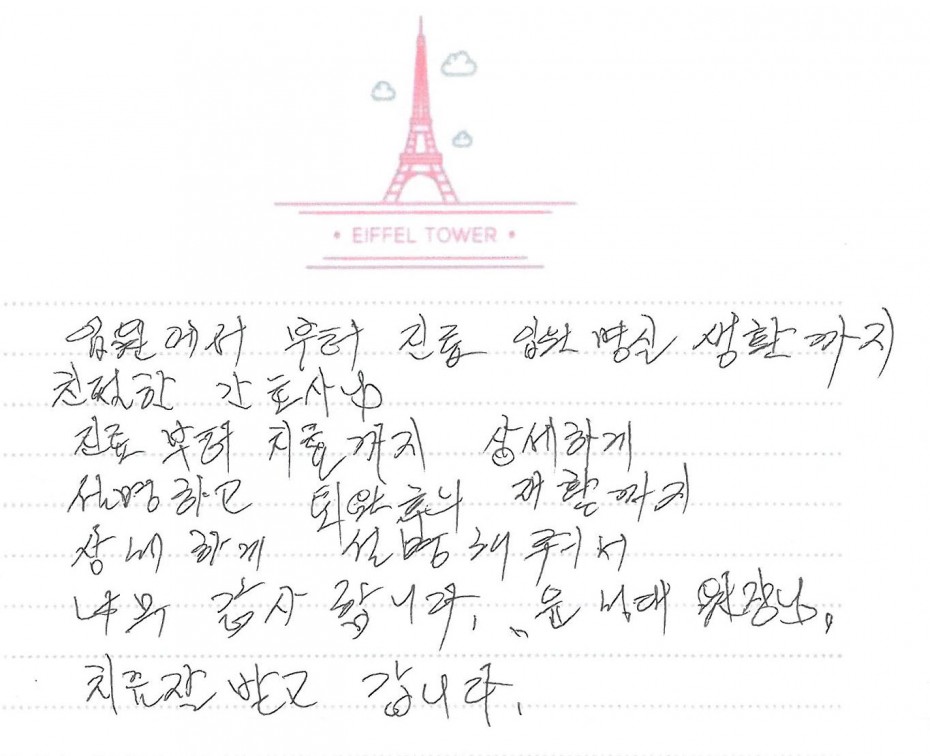 • EIFFEL TOWER •
입원에서 부터 진료 입원 병실 생활까지
친절한 간호사님
진료 부터 치료까지 상세하게
설명하고 퇴원후나 재활까지
상세하게 설명해주서
너무 감사합니다. 윤 원장님.
치료잘 받고 갑니다.